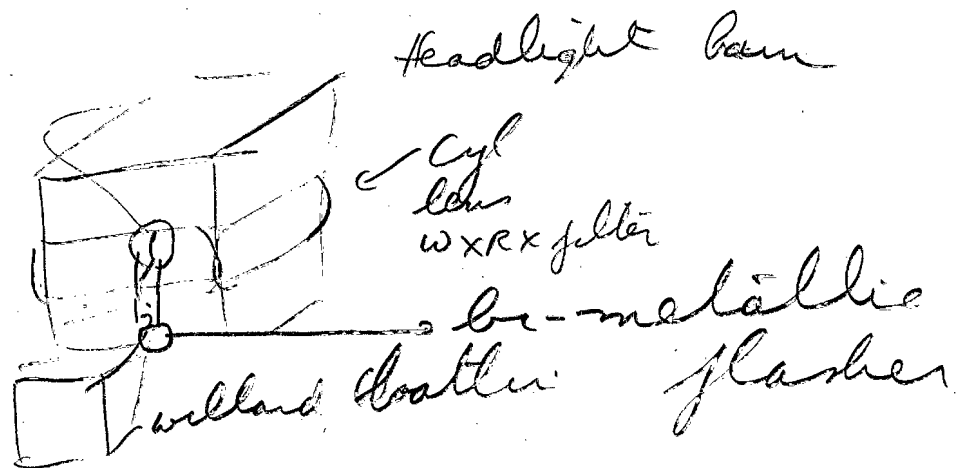 Headlight
Cyl
lens
WXRX filter
bi-metallic
flasher
willard